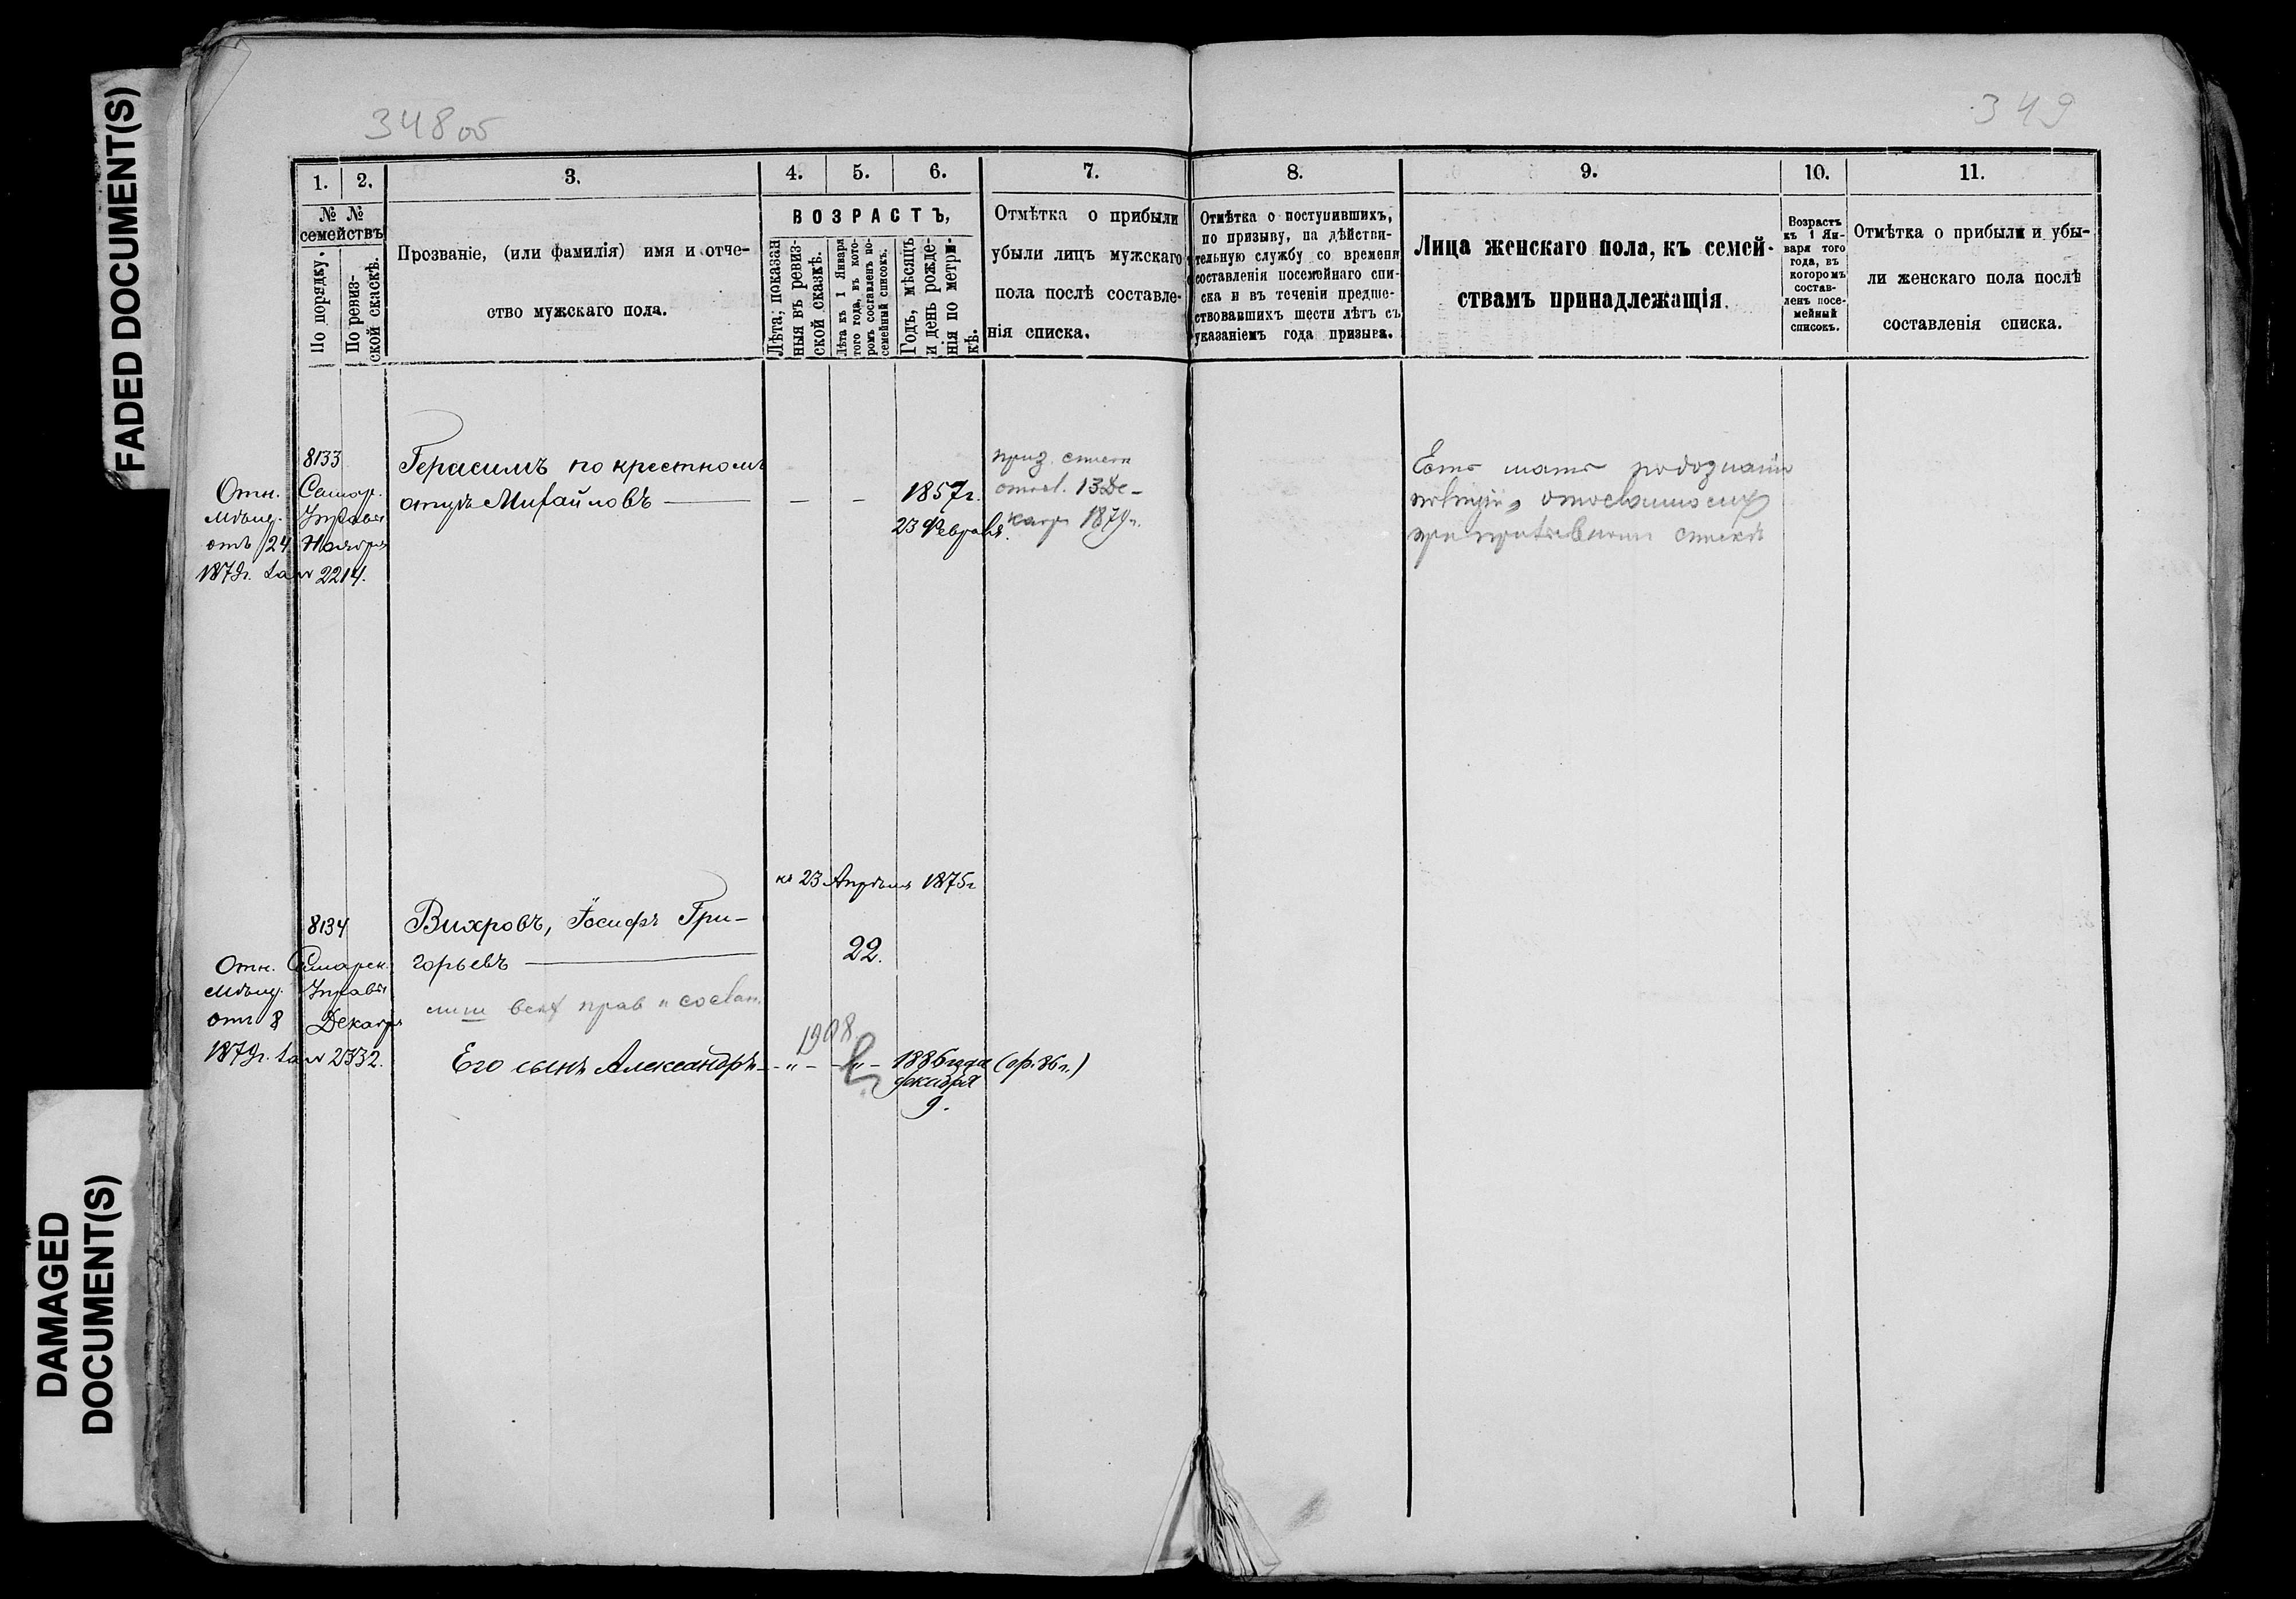 FADED DOCUMENT(S)
DAMAGED
DOCUMENT(S)
348 об
349
1.
2.
3.
4.
5.
6.
7.
8.
9.
10.
11.
№ №
семействъ
По порядку.
По ревиз-
ской скаскѣ.
Прозваніе, (или фамилія) имя и отче-
ство мужскаго пола.
ВОЗРАСТЪ,
Лѣта, показан
ныя въ ревиз-
ской сказкѣ.
Лѣта къ 1 Января
того года, въ кото-
ромъ составленъ по-
семейный списокъ.
Годъ, мѣсяцъ
и день рожде-
нія по метри-
кѣ.
Отмѣтка о прибыли
убыли лицъ мужскаго
пола послѣ составле-
нія списка.
Отмѣтка о поступившихъ,
по призыву, на дѣйстви-
тельную службу со времени
составленія посемейнаго спи-
ска и въ теченіи предше-
ствовавшихъ шести лѣтъ съ
указаніемъ года призыва.
Лица женскаго пола, къ семей-
ствамъ принадлежащія.
Возрастъ
къ 1 Ян-
варя того
года, въ
которомъ
состав-
ленъ посе-
мейный
списокъ.
Отмѣтка о прибыли и убы-
ли женскаго пола послѣ
составленія списка.
8133
Отн. Самар.
Мѣщ. Управы
отъ 24 Ноября
1879г. за № 2214.
Герасимъ по крестному
отцу Михайловъ —
— —
1857г.
23 Февраля.
приз. списк
отост. 13 Де-
кабр 1879г.
Есть мать
при призывном списке
къ 23 Апрѣля 1875г
8134
Отн. Самарск.
Мѣщ. Управы
отъ 8 Декабря
1879г. за № 2332.
Вихровъ, Іосифъ Гри-
горьевъ —
22.
лиш всех прав и состоян.
1908.
Его сынъ Александръ - „ - - „ - 1886 года (ор. 86 г.)
декабря
9.